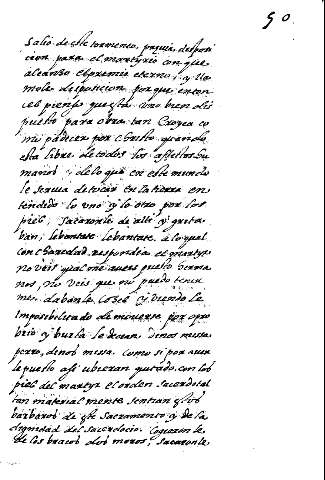 50
Salio de este tormento, por via disposi
cion para el martyrio con que
alcanzo el premio eterno, y lla
mole desposicion, por que enton
ces pienso que esta uno bien dis
puesto para obra tan
mo padecer por Christo quando
esta libre de todos los affectos hu
manos, y de lo que en este mundo
le servia de tocar en la tierra en
tendido lo uno y lo otro por los
pies, Sacaronle de alli, y grita
ban, lebantate lebantate, a lo qual
con Charidad respondia el martyr
no veis qual me aveis puesto herma
nos, no veis que no puedo tener
me, dabanle coses y viendo le
imposibilitado de moverse por opro
brio y burla le decian dinos missa
perro, dinos missa. como si por aver
le puesto assi ubieran quitado con los
pies del martyr el orden Sacerdotal
tan material mente sentian estos
barbaros de este Sacramento y de la
dignidad del sacerdocio. Cogieronle
de los bracos dos moros, Sacaronle